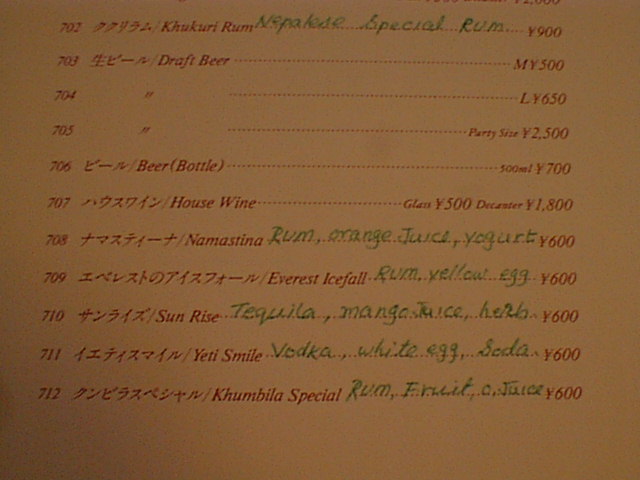 702 ククリラム/Khukuri Rum Nepalese Special Rum ¥900
703 生ビール/Draft Beer M¥500
704 〃 L¥650
705 〃 Party Size ¥2,500
706 ビール/Beer(Bottle) 500ml ¥700
707 ハウスワイン/House Wine Glass ¥500 Decanter ¥1,800
708 ナマスティーナ/Namastina Rum, orange Juice, yogurt ¥600
709 エベレストのアイスフォール/Everest Icefall Rum, yellow egg ¥600
710 サンライズ/Sun Rise Tequila, mango Juice, herb ¥600
711 イエティスマイル/Yeti Smile Vodka, white egg, Soda ¥600
712 クンビラスペシャル/Khumbila Special Rum, Fruit, o, Juice ¥600